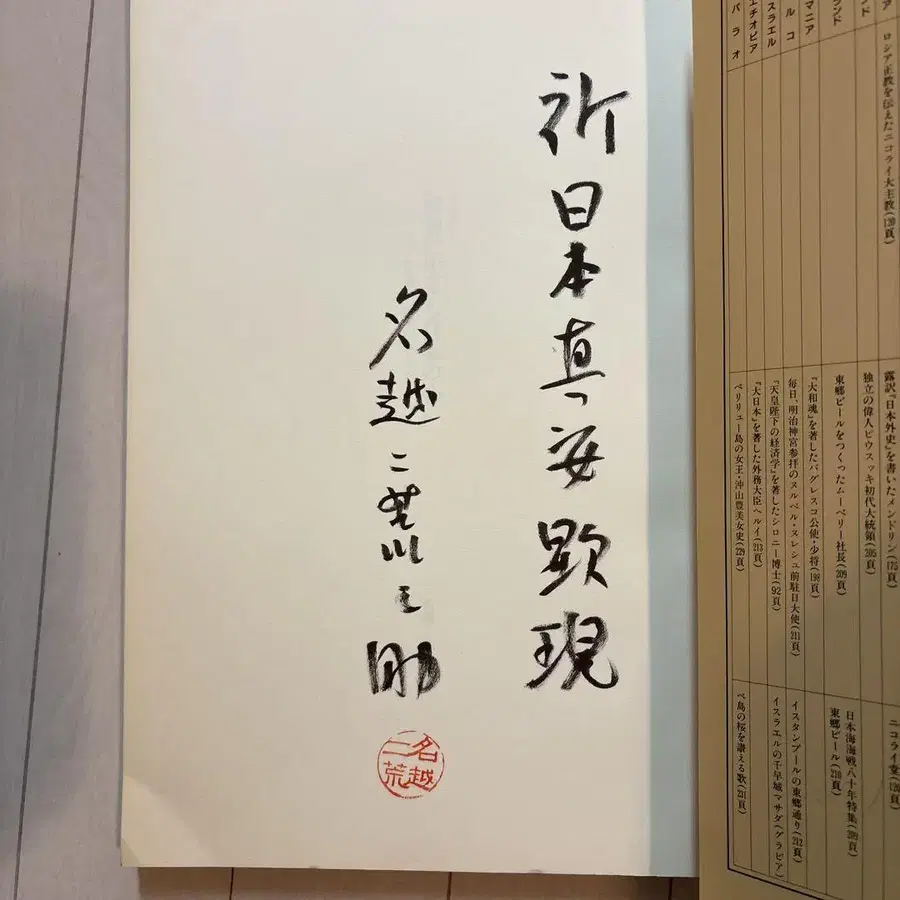 ア
ンド
ランド
マニア
ルコ
スラエル
エチオピア
パラオ
ロシア正教を伝えたニコライ大主教(120頁)
露訳『日本外史』を書いたメンドリン(175頁)
独立の偉人ピウスツキ初代大統領(205頁)
東郷ビールをつくったムーベリー社長(209頁)
『大和魂』を著したバグレスコ公使・少将(198頁)
毎日、明治神宮参拝のヌルベル・ヌレシュ前駐日大使(211頁)
『天皇陛下の経済学』を著したシロニー博士(92頁)
『大日本』を著した外務大臣ヘルイ(213頁)
ペリリュー島の女王・沖山豊美女史(229頁)
ニコライ堂(120
日本海海戦八十年特集(209頁)
東郷ビール(210頁)
イスタンブールの東郷通り(212頁)
イスラエルの千早城マサダ(グラビア)
ペ島の桜を讃える歌(231頁)
祈
日本真姿顕現
名越二荒之助
名越
二荒